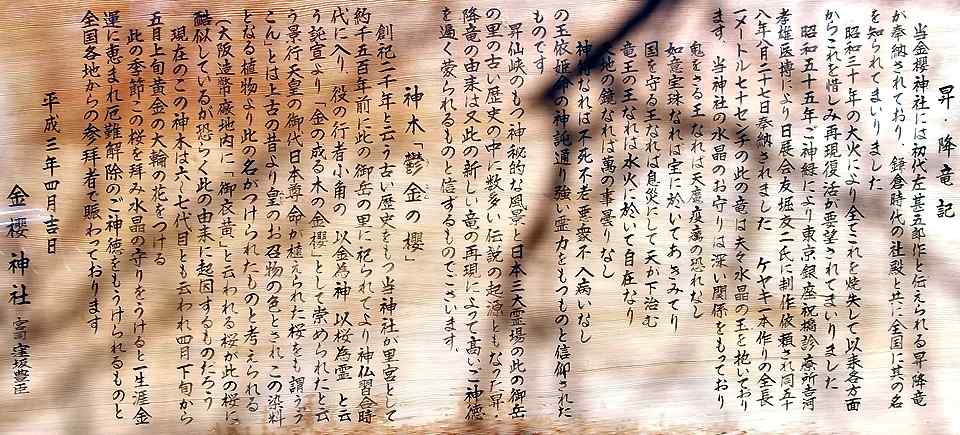 昇・降竜記
当金櫻神社には初代左甚五郎作と伝えられる昇降竜
が奉納されており、鎌倉時代の社殿と共に全国に其の名
を知られてまいりました
昭和三十年の大火により全てこれを焼失して以来各方面
からこれを惜しみ再現復活が要望されてまいりました
昭和五十五年ご神縁により東京銀座祝橋診療所吉河
孝雄医博により日展会友堀友二氏に制作依頼され同五十
八年八月二十七日奉納されました ケヤキ一本作りの全長
一メートル七十センチの此の竜は夫々水晶の玉を抱いており
ます、当神社の水晶のお守りは深い関係をもっており
鬼をさる王なれば天魔疫癘の恐れなし
如意宝珠なれば宝に於いてあきみてり
国を守る王なれば息災にして天が下治む
竜王の王なれば水火に於いて自在なり
天地の鏡なれば萬の事曇りなし
神体なれば不死不老悪衆不入病いなし
の玉依姫命の神託通り強い霊力をもつものと信仰された
ものです
昇仙峡のもつ神秘的な風景と日本三大霊場の此の御岳
の里の古い歴史の中に数多い伝説の起源ともなった昇・
降竜の由来は又此の新しい竜の再現によって高いご神徳
を遍く蒙られるものと信するものでございます、
神木「鬱金の櫻」
創祀二千年と云う古い歴史をもつ当神社が里宮として
約千五百年前に此の御岳の里に祀られてより神仏習合時
代に入り、役の行者小角の 以金為神 以桜為霊 と云
う託宣より「金の成る木の金櫻」として崇められたと云
う景行天皇の御代日本尊命が植えられた桜をも謂ううっ
こん」とは上古の昔より皇の召物の色とされこの染料
となる植物より此の名がつけられたものと考えられる
(大阪造幣廠地内に「御衣黄」と云われる桜が此の桜に
酷似しているが恐らく此の由来に起因するものだろう
現在のこの神木は六〜七代目とも云われ四月下旬から
五月上旬黄金の大輪の花をつける
此の季節この桜を拝み水晶の守りをうけると一生涯金
運に恵まれ厄難解除のご神徳をもうけられるものと
全国各地からの参拝者で賑わっております
平成三年四月吉日
金櫻神社 宮司 窪坂豊臣